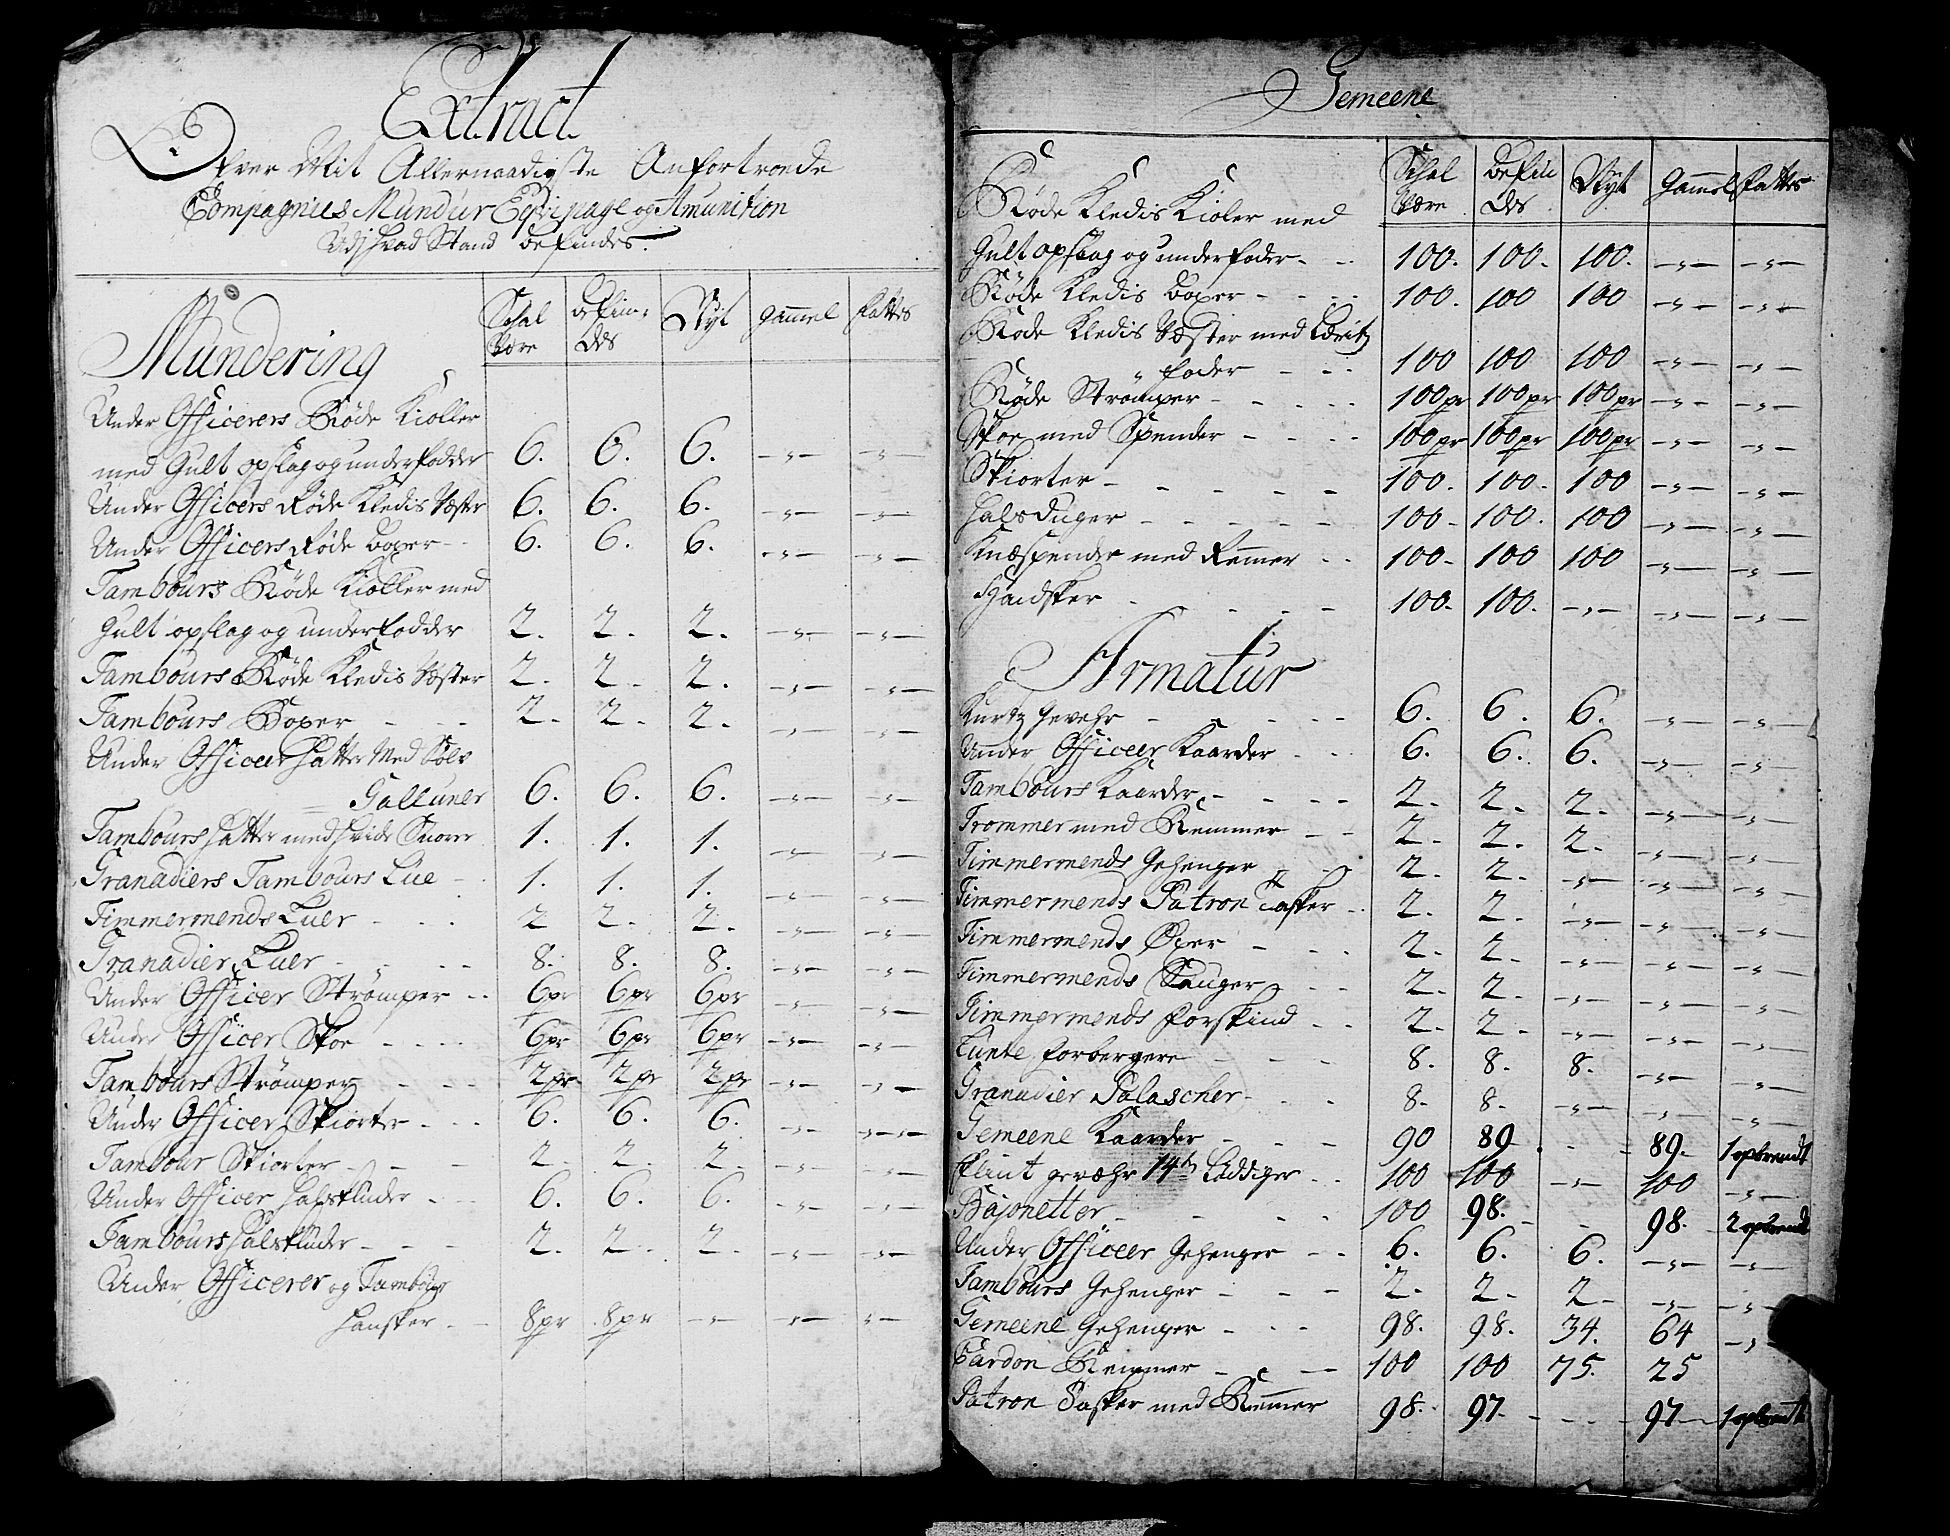 Extract
Ofver Mit Allernaadigste Anfortroede
Compagnies Mundur Equipage og Amunition
Udj hvad Stand befindes.
Mundering
Schal Være | Befindes | Nyt | Gammel | Fattes
Under Officerers Røde Kioller
med Gult opslag og underfodder 6. 6. 6. -„- -„-
Under Officers Røde Kledis Vester 6. 6. 6. -„- -„-
Under Officers Røde Boxer - - 6. 6. 6. -„- -„-
Tambours Røde Kioller med
Gult opslag og underfodder 2. 2. 2. -„- -„-
Tambours Røde Kledis Vester 2. 2. 2. -„- -„-
Tambours Boxer - - - 2. 2. 2. -„- -„-
Under Officeer Hatter Med Sølv
Galluner 6. 6. 6. -„- -„-
Tambours Hatter med hvide Snorer 1. 1. 1. -„- -„-
Granadiers Tambours Lue - 1. 1. 1. -„- -„-
Timmermends Luer - - 2 2. 2. -„- -„-
Granadier Luer - - - 8. 8. 8. -„- -„-
Under Officer Strømper - - 6pr 6pr 6pr -„- -„-
Under Officer Skoe - - - - 6pr 6pr 6pr -„- -„-
Tambours Strømper - - - 2pr 2pr 2pr -„- -„-
Under Officer Skiorter - - - 6. 6. 6. -„- -„-
Tambour Skiorter - - - 2. 2. 2. -„- -„-
Under Officer Halskluder - - 6. 6. 6. -„- -„-
Tambours Halskluder - - - 2. 2. 2. -„- -„-
Under Officerer og Tambour
Hansker - - 8pr 8pr -„- -„- -„-
Gemeene
Schal Være | Befindes | Nyt | Gammel | Fattes
Røde Kledis Kioler med
Gult opslag og underfoder - - 100. 100. 100. -„- -„-
Røde Kledis Boxer - - - - 100. 100 100 -„- -„-
Røde Kledis Vester med Lerits
foder - - - 100 100 100 -„- -„-
Røde Strømper - - - - 100pr 100pr 100pr -„- -„-
Skoe med Spender - - - - 100pr 100pr 100pr -„- -„-
Skiorter - - - - - 100. 100. 100 -„- -„-
Halsduger - - - - - 100 100. 100 -„- -„-
Knæspender med Remmer - - 100. 100 100 -„- -„-
Handsker - - - - 100. 100. -„- -„- -„-
Armatur
Kurtz Gevehr - - - - - 6. 6. 6. -„- -„-
Under Officeer Kaarder - - 6. 6. 6. -„- -„-
Tambours Kaarder - - - - 2. 2. 2. -„- -„-
Trommer med Remmer - - 2. 2. 2. -„- -„-
Timmermends Gehenger - - 2. 2. -„- -„- -„-
Timmermends Patron Tasker - - 2. 2. -„- -„- -„-
Timmermends Øxer - - - 2. 2. -„- -„- -„-
Timmermends Sauger - - 2. 2. -„- -„- -„-
Timmermends Forskind - - 2. 2. -„- -„- -„-
Lunte forbergere - - - 8. 8. 8. -„- -„-
Granadier Palascher - - - 8. 8. -„- -„- -„-
Gemeene Kaarder - - - 90 89 - - 89. 1 opbrendt
Flint gevæhr 14 Laddiger - - 100 100 -„- 100 -„-
Bajonetter - - - - 100 98. - - 98. 2 opbrendt
Under Officeer Gehenger - - 6. 6. 6. -„- -„-
Tambours Gehenger - - - 2. 2 2 -„- -„-
Gemeene Gehenger - - - 98. 98. 34. 64 -„-
Cardon Remmer - - - 100 100 75. 25
Patron Tasker med Remmer 98. 97. - - - 97 1 opbrendt